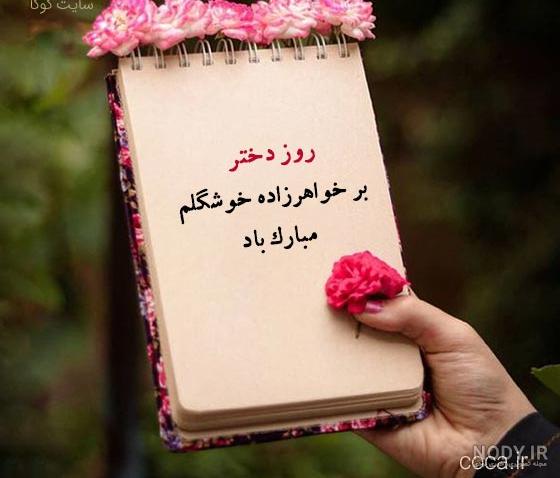 سایت کوکا
روز دختر
بر خواهرزاده خوشگلم
مبارك باد
NODY.IR
coca.ir